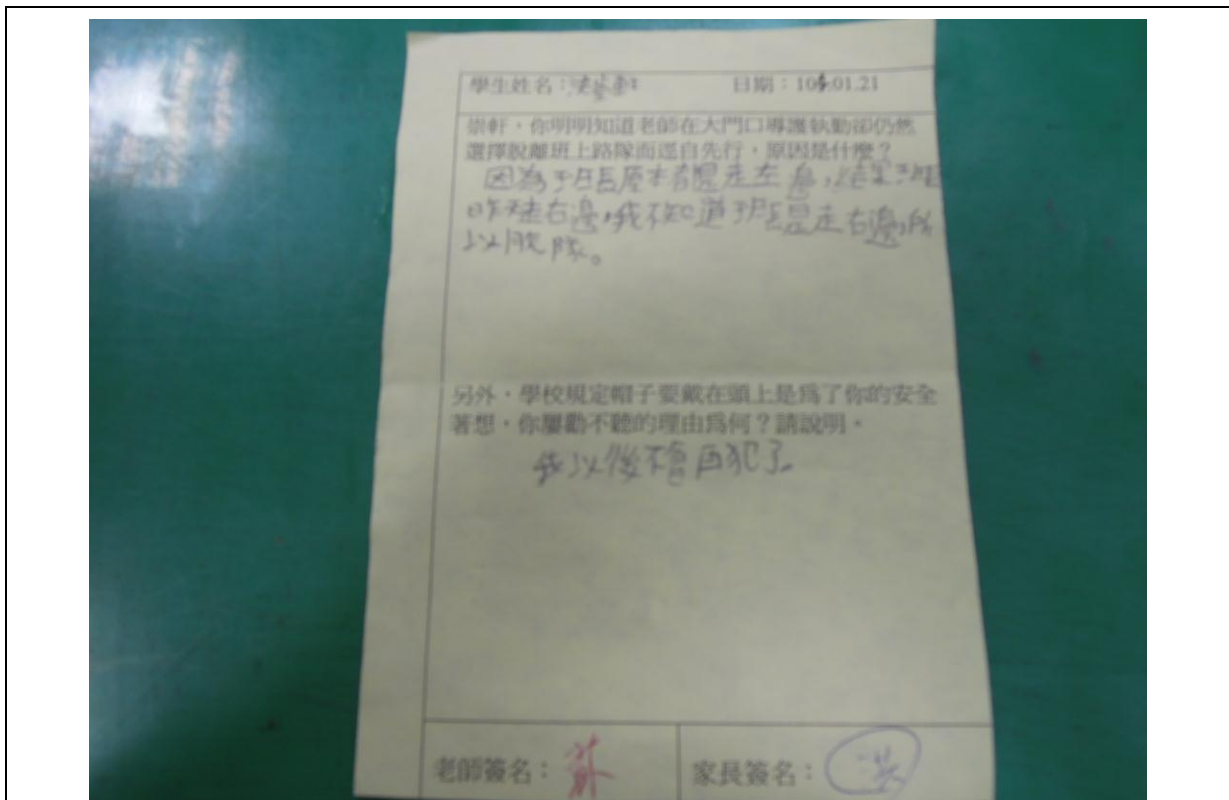 學生姓名：洪崇軒 日期：104.01.21
崇軒，你明明知道老師在大門口導護執勤卻仍然
選擇脫離班上路隊而逕自先行，原因是什麼？
因為班長原本都是走左邊，
昨天走右邊，我不知道班長是走右邊，所
以脫隊。
另外，學校規定帽子要戴在頭上是為了你的安全
著想，你屢勸不聽的理由為何？請說明。
我以後不會再犯了。
老師簽名：蘇 家長簽名：洪